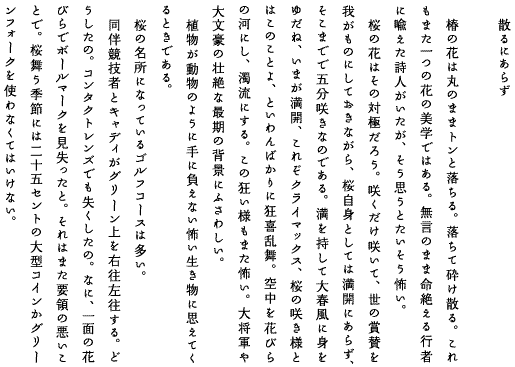 散るにあらず
椿の花は丸のままトンと落ちる。落ちて砕け散る。これ
もまた一つの花の美学ではある。無言のまま命絶える行者
に喩えた詩人がいたが、そう思うとたいそう怖い。
桜の花はその対極だろう。咲くだけ咲いて、世の賞賛を
我がものにしておきながら、桜自身としては満開にあらず、
そこまでで五分咲きなのである。満を持して大春風に身を
ゆだね、いまが満開、これぞクライマックス、桜の咲き様と
はこのことよ、といわんばかりに狂喜乱舞。空中を花びら
の河にし、濁流にする。この狂い様もまた怖い。大将軍や
大文豪の壮絶な最期の背景にふさわしい。
植物が動物のように手に負えない怖い生き物に思えてく
るときである。
桜の名所になっているゴルフコースは多い。
同伴競技者とキャディがグリーン上を右往左往する。ど
うしたの。コンタクトレンズでも失くしたの。なに、一面の花
びらでボールマークを見失ったと。それはまた要領の悪いこ
とで。桜舞う季節には二十五セントの大型コインかグリー
ンフォークを使わなくてはいけない。